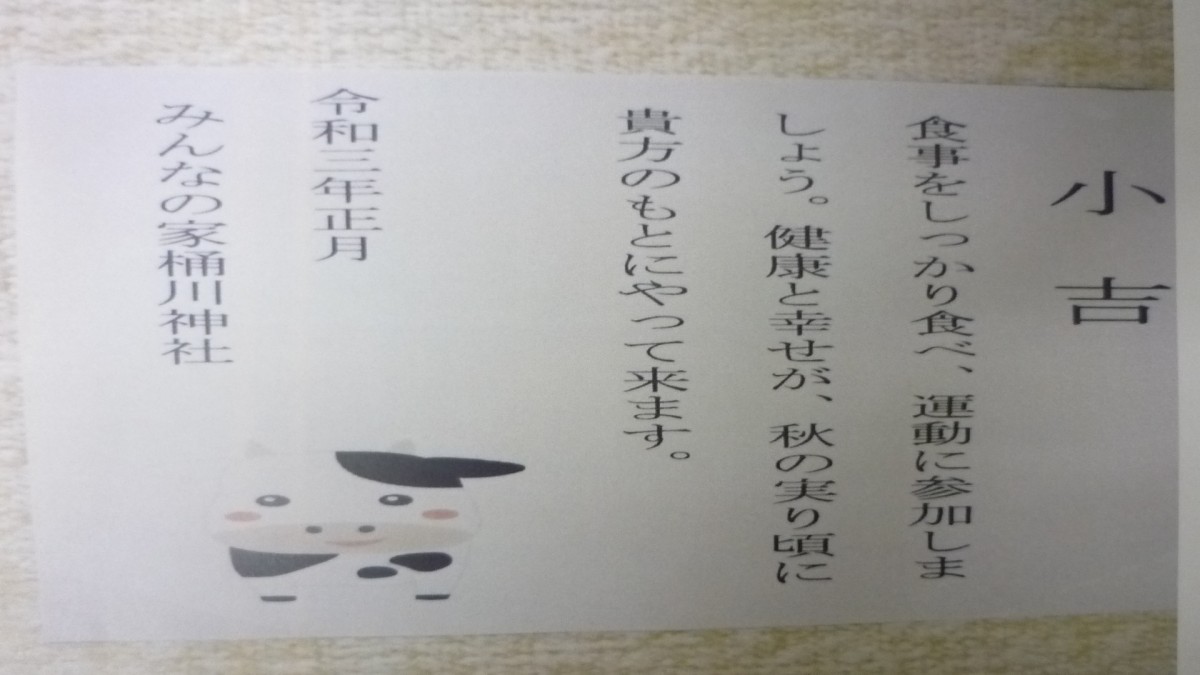 小吉
食事をしっかり食べ、運動に参加しま
しょう。健康と幸せが、秋の実り頃に
貴方のもとにやって来ます。
令和三年正月
みんなの家桶川神社